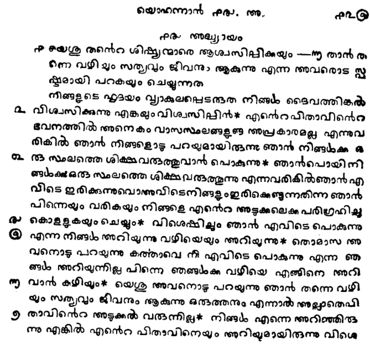 യൊഹന്നാൻ ൧൪. അ.
൧൪. അദ്ധ്യായം
൧ യെശു തൻെറ ശിഷ്യന്മാരെ ആശ്വസിപ്പിക്കയും —൬ താൻ ത
ന്നെ വഴിയും സത്യവും ജീവനും ആകുന്നു എന്ന അവരൊട സ്പ
ഷ്ടമായി പറകയും ചെയ്യുന്നത
നിങ്ങളുടെ ഹൃദയം വ്യാകുലപ്പെടരുത നിങ്ങൾ ദൈവത്തിങ്കൽ
൨ വിശ്വസിക്കുന്നു എങ്കലും വിശ്വസിപ്പിൻ* എൻെറ പിതാവിൻെറ
ഭവനത്തിൽ അനെകം വാസസ്ഥലങ്ങളുണ്ട അപ്രകാരമല്ല എന്നുവ
രികിൽ ഞാൻ നിങ്ങളൊടു പറയുമായിരുന്നു ഞാൻ നിങ്ങൾക്ക ഒ
൩ രു സ്ഥലത്തെ ഒരുക്കുവാൻ പൊകുന്നു* ഞാൻ പൊയി നി
ങ്ങൾക്ക ഒരു സ്ഥലത്തെ ഒരുക്കുന്നു എന്നവരികിൽ ഞാൻ എ
വിടെ ഇരിക്കുന്നുവൊ അവിടെ നിങ്ങളും ഇരിക്കെണ്ടുന്നതിന്ന ഞാൻ
പിന്നെയും വരികയും നിങ്ങളെ എൻെറ അടുക്കലെക്കു പരിഗ്രഹിച്ചു
൪ കൊള്ളുകയും ചെയ്യും* വിശെഷിച്ചും ഞാൻ എവിടെ പൊകുന്നു
൫ എന്ന നിങ്ങൾ അറിയുന്നു വഴിയെയും അറിയുന്നു* തൊമാസ അ
വനൊടു പറയുന്നു കൎത്താവെ നീ എവിടെ പൊകുന്നു എന്ന ഞ
ങ്ങൾ അറിയുന്നില്ല പിന്നെ ഞങ്ങൾക്കു വഴിയെ എങ്ങിനെ അറി
൬ വാൻ കഴിയും* യെശു അവനൊടു പറയുന്നു ഞാൻ തന്നെ വഴി
യും സത്യവും ജീവനും ആകുന്നു ഒരുത്തനും എന്നാൽ അല്ലാതെ പി
൭ താവിൻെറ അടുക്കൽ വരുന്നില്ല* നിങ്ങൾ എന്നെ അറിഞ്ഞിരു
ന്നു എങ്കിൽ എൻെറ പിതാവിനെയും അറിയുമായിരുന്നു വിശെ